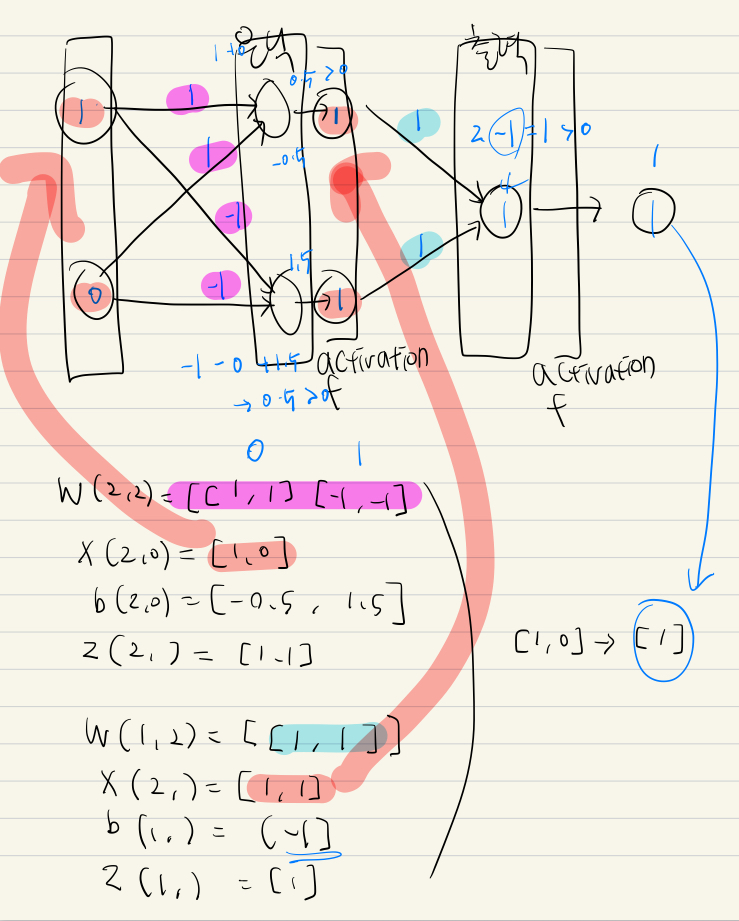 1 + 0
0.5 > 0
1
1
1
1
2 -1 = 1 > 0
1
-0.5
-1
1
1
1
1.5
-1
0
1
-1 - 0 + 1.5
→ 0.5 > 0
activation
f
activation
f
0 1
W (2,2) = [[1, 1] [-1, -1]
X (2,0) = [1, 0]
b (2,0) = [-0.5, 1.5]
Z (2, ) = [1 1]
[1, 0] → [1]
W (1,2) = [[1, 1]]
X (2, ) = [1, 1]
b (1, ) = (-1]
Z (1, ) = [1]